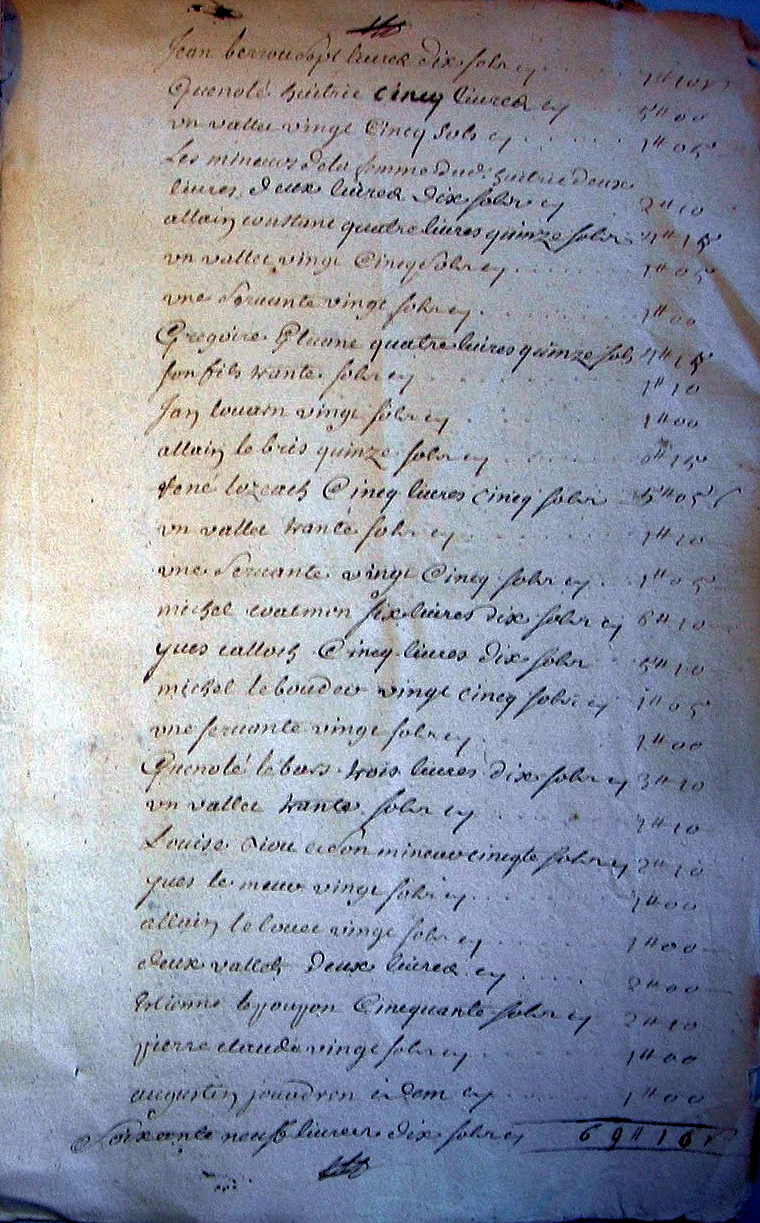 Jean berrou sept livres dix sols cy 7# 10s
Guenolé huitric cincq livres cy 5# 00
vn vallet vingt Cincq sols cy 1# 05
Les mineurs de la femme dud. huitric deux
livres, deux livres dix sols cy 2# 10
allain constant quatre livres quinze sols 4# 15
vn vallet vingt Cincq sols cy 1# 05
vne servante vingt sols cy 1# 00
Gregoire quatre livres quinze sols 4# 15
son fils trante sols cy 1# 10
Jan louarn vingt sols cy 1# 00
allain le bris quinze sols cy 0# 15
rené lozeach Cincq livres cincq sols 5# 05
vn vallet trante sols cy 1# 10
vne servante vingt Cincq sols cy 1# 05
michel coatmen six livres dix sols cy 6# 10
yues calloch Cincq livres dix sols 5# 10
michel le boudec vingt cincq sols cy 1# 05
vne servante vingt sols cy 1# 00
Guenolé le bars trois livres dix sols cy 3# 10
vn vallet trante sols cy 1# 10
Louise riou et son mineur cincqte sols cy 2# 10
yues le meur vingt sols cy 1# 00
allain le louet vingt sols cy 1# 00
deux vallets deux livres cy 2# 00
Estienne le poupon Cincquante sols cy 2# 10
pierre claude vingt sols cy 1# 00
augustin idem cy 1# 00
Soixante neuff livres dix sols cy 69# 10s